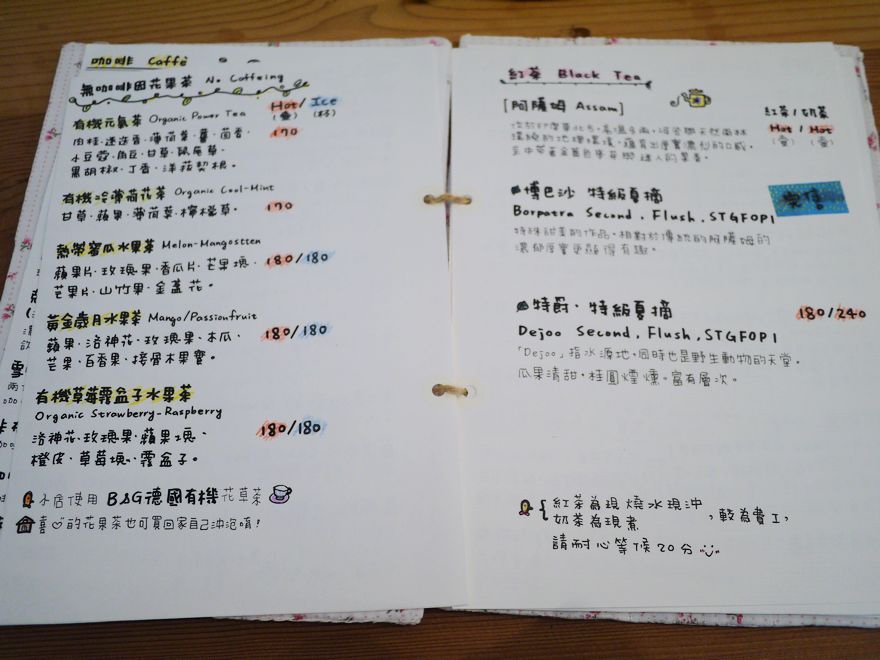 咖啡 Caffè
無咖啡因花果茶 No Caffeing
Hot / Ice
(壺) (杯)
有機元氣茶 Organic Power Tea
170
肉桂、迷迭香、薄荷葉、薑、茴香、
小豆蔻、角豆、甘草、鼠尾草、
黑胡椒、丁香、洋菝契根。
有機冷薄荷花茶 Organic Cool-Mint
甘草、蘋果、薄荷葉、檸檬草。
170
熱帶蜜瓜水果茶 Melon-Mangostten
蘋果片、玫瑰果、香瓜片、芒果塊、
180/180
芒果片、山竹果、金盞花。
黃金歲月水果茶 Mango/Passionfruit
蘋果、洛神花、玫瑰果、木瓜、
180/180
芒果、百香果、接骨木果實。
有機草莓霧盆子水果茶
Organic Strawberry-Raspberry
洛神花、玫瑰果、蘋果塊、
180/180
橙皮、草莓塊、霧盆子。
小店使用 B&G德國有機花草茶
喜的花果茶也可買回家自己沖泡唷!
紅茶 Black Tea
[阿薩姆 Assam]
紅茶/奶茶
Hot / Hot
(壺) (壺)
博巴沙 特級夏摘
Borpatra Second, Flush, STGFOP1
特殊甜美的作品,相對於傳統的阿薩姆的
濃郁厚實更顯得有趣。
特爵. 特級夏摘
180/240
Dejoo Second, Flush, STGFOP1
「Dejoo」指水源地,同時也是野生動物的天堂。
瓜果清甜,桂圓煙燻。富有層次。
紅茶為現燒水現沖
奶茶為現煮
,較為費工,
請耐心等候20分